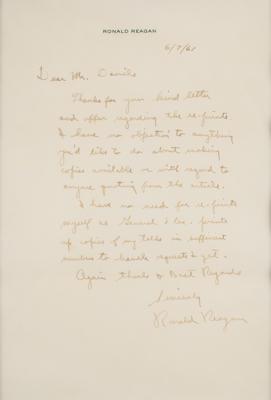 RONALD REAGAN
6/7/61
Dear Mr. Daniels
Thanks for your kind letter
and offer regarding the re-prints
I have no objection to anything
you'd like to do about making
copies available or with regard to
anyone quoting from the article.
I have no need for re-prints
myself as General Elec. prints
up copies of my talks in sufficient
numbers to handle requests I get.
Again thanks & Best Regards
Sincerely
Ronald Reagan